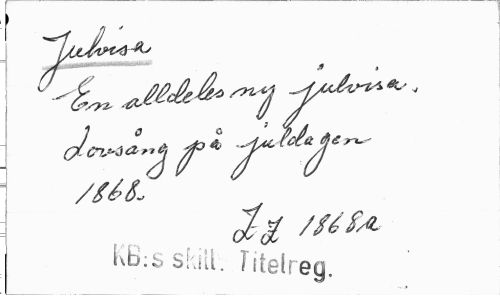 Julvisa
En alldeles ny julvisa.
Lovsång på juldagen
1868.
1868a
KB:s skill. Titelreg.